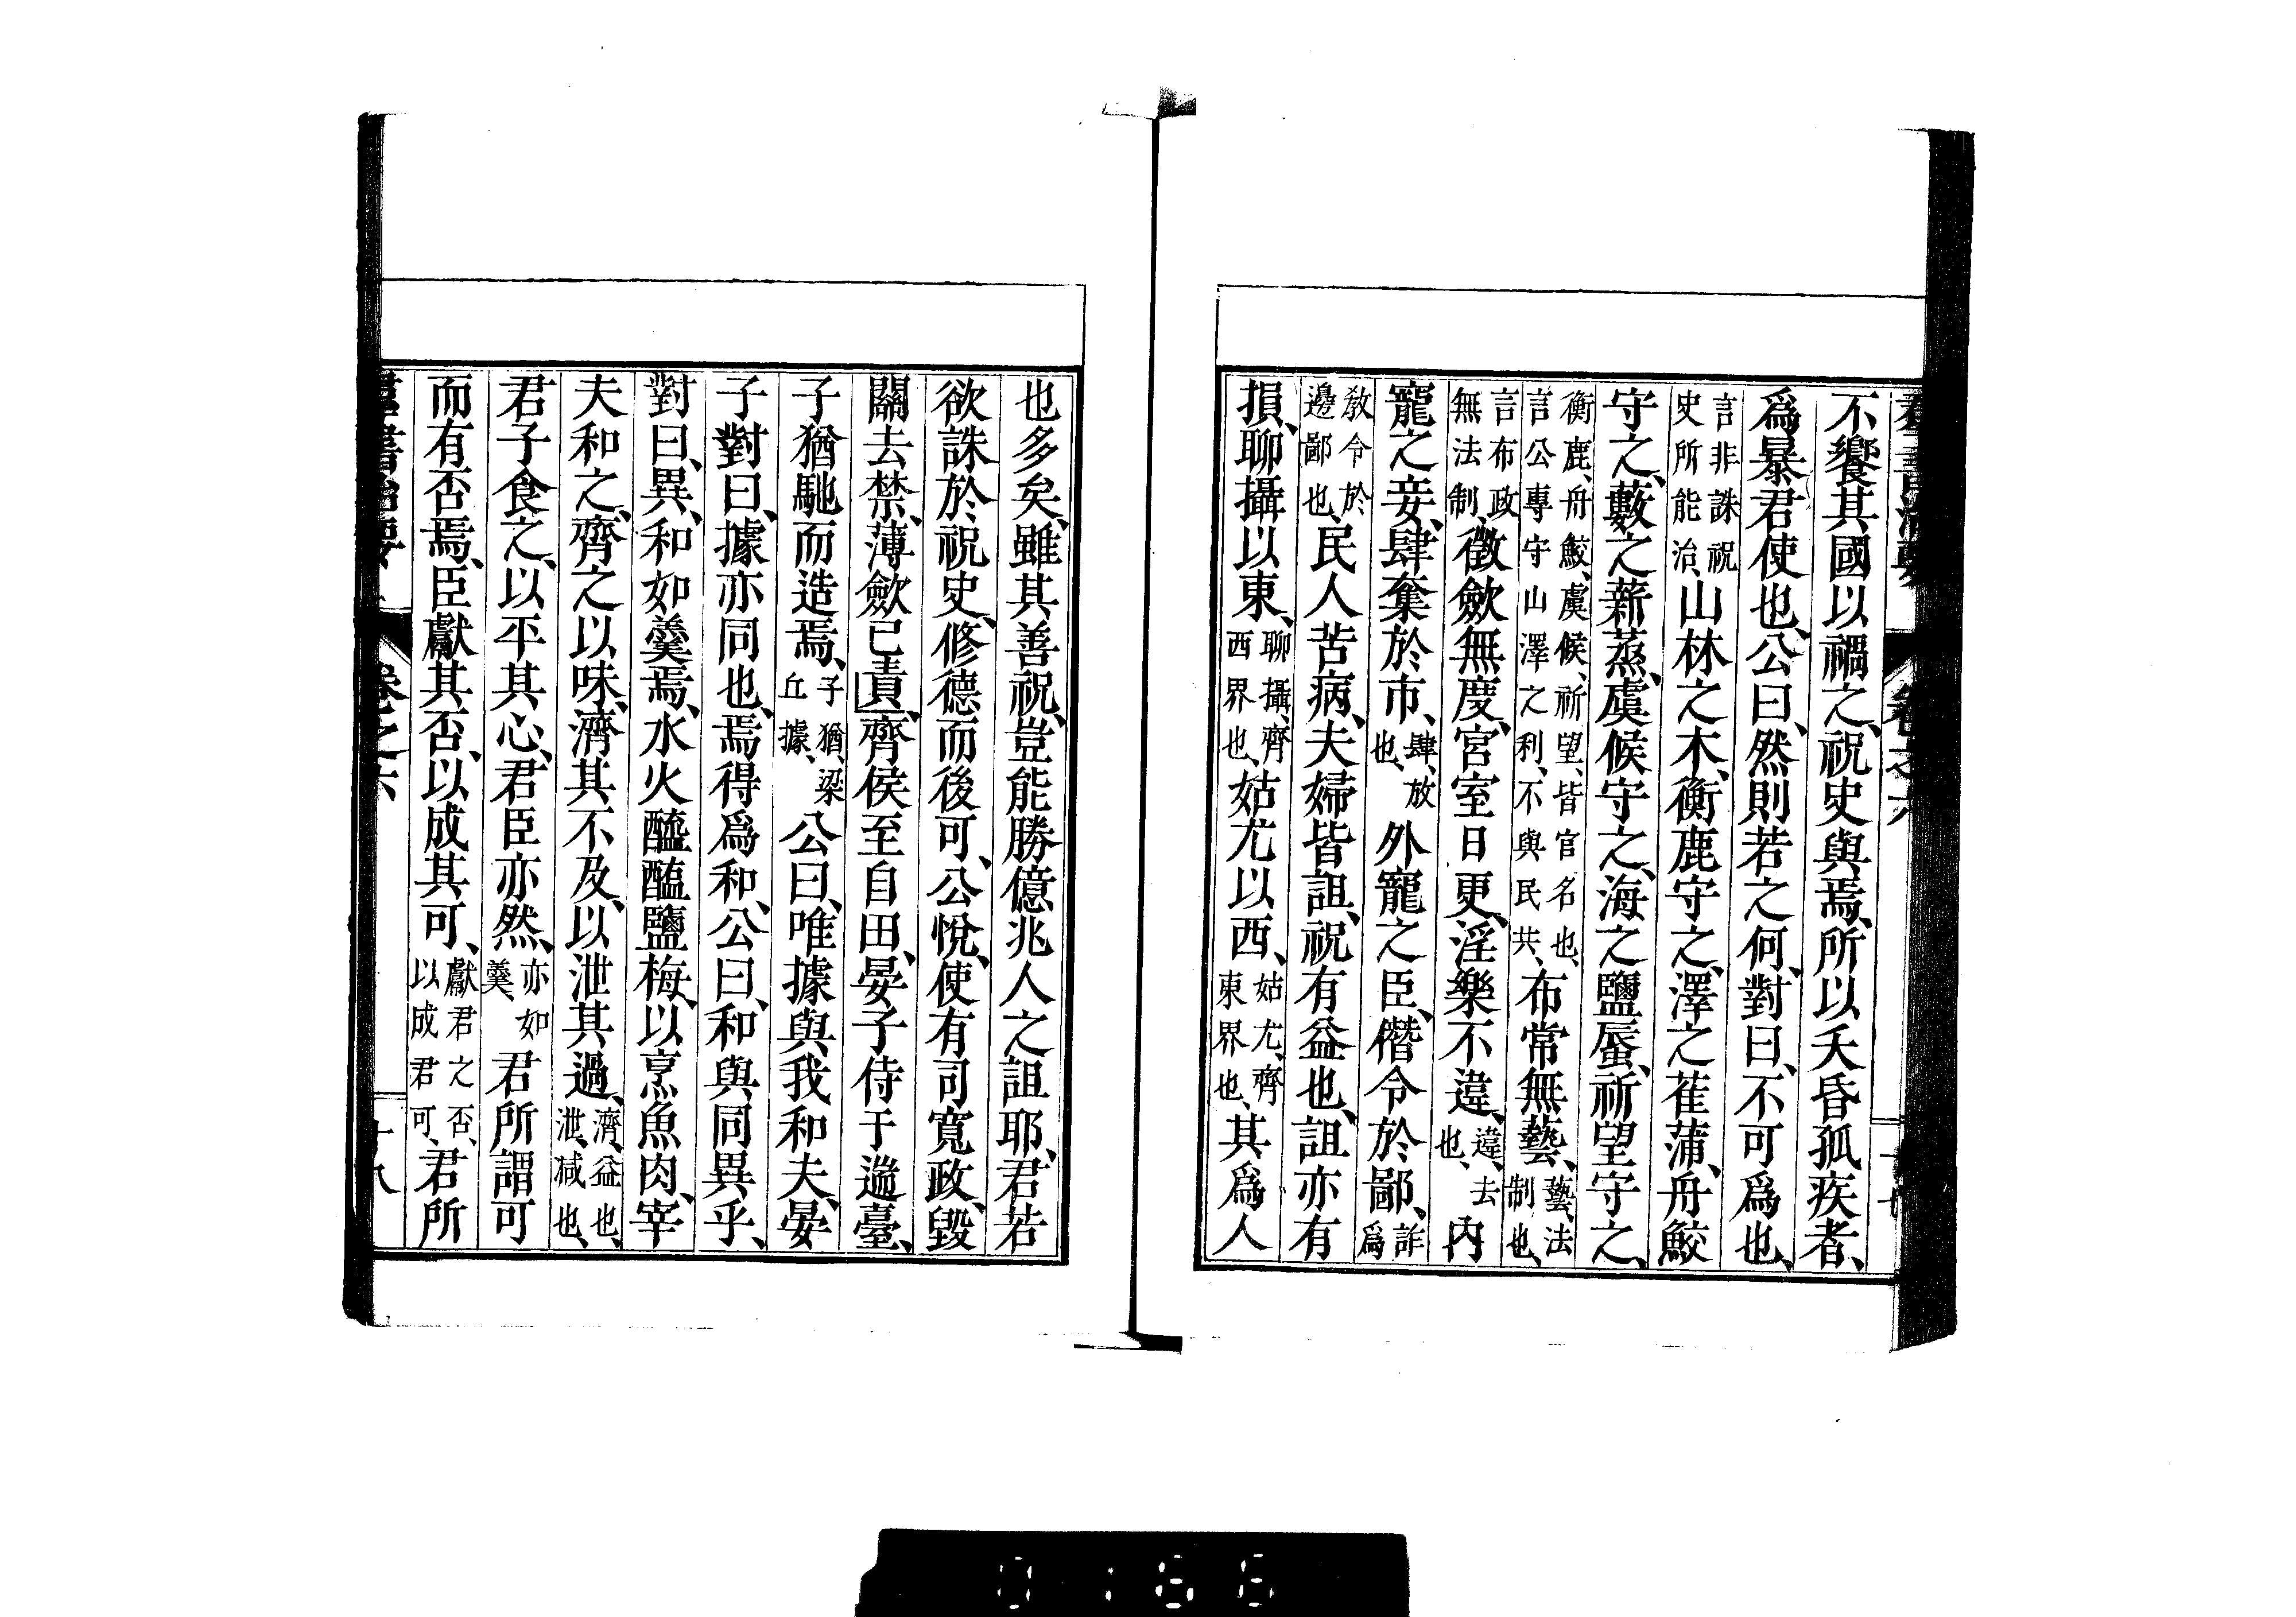 不饗其國以禍之、祝史與焉、所以夭昏孤疾者、
爲暴君使也、公曰、然則若之何、對曰、不可爲也、
言非誅祝史所能治、山林之木、衡鹿守之、澤之萑蒲、舟鮫
守之、藪之薪蒸、虞候守之、海之鹽蜃、祈望守之、
衡鹿、舟鮫、虞候、祈望、皆官名也、言公專守山澤之利、不與民共、布常無藝、藝、法制也、
言布政無法制、徵斂無度、宮室日更、淫樂不違、違、去也、內
寵之妾、肆奪於市、肆、放也、外寵之臣、僭令於鄙、詐爲
敎令於邊鄙也、民人苦病、夫婦皆詛、祝有益也、詛亦有
損、聊攝以東、聊攝、齊西界也、姑尤以西、姑尤、齊東界也、其爲人
也多矣、雖其善祝、豈能勝億兆人之詛耶、君若
欲誅於祝史、修德而後可、公悅、使有司寬政、毀
關去禁、薄斂已責、齊侯至自田、晏子侍于遄臺、
子猶馳而造焉、子猶、梁丘據、公曰、唯據與我和夫、晏
子對曰、據亦同也、焉得爲和、公曰、和與同異乎、
對曰、異、和如羹焉、水火醯醢鹽梅、以烹魚肉、宰
夫和之、齊之以味、濟其不及、以泄其過、濟、益也、泄、減也、
君子食之、以平其心、君臣亦然、亦如羹、君所謂可
而有否焉、臣獻其否、以成其可、獻君之否、以成君可、君所
群書治要
卷之六
十八
0166